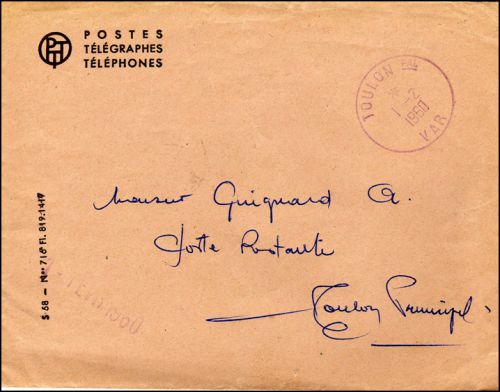 PTT
POSTES
TÉLÉGRAPHES
TÉLÉPHONES
TOULON PAL
*
1-2
1960
VAR
Monsieur Guignard A.
Poste Restante
Toulon Principal
1960